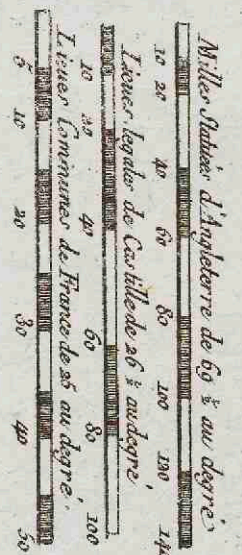 Milles Statués d'Angleterre de 69 ½ au degré
10 20 40 60 80 100 120 140
Lieues legales de Castille de 26 ½ au degré
10 20 40 60 80 100
Lieues Communes de France de 25 au degré.
5 10 20 30 40 50